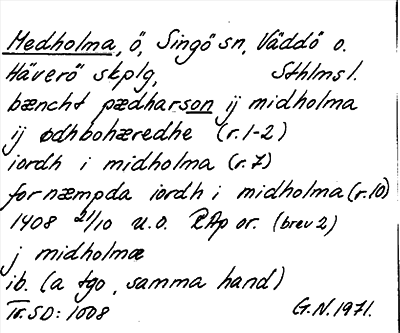 Medholma, ö, Singö sn, Väddö o.
Häverö skplg, Sthlms l.
bæncht pædharson ij midholma
ij ødhbohæredhe (r. 1-2)
iordh i midholma (r. 7)
fornæmpda iordh i midholma (r. 10)
1408 21/10 u.o. RAp or. (brev 2)
j midholmæ
ib. (a tgo, samma hand)
IV. SD: 1008 G.N. 1971.